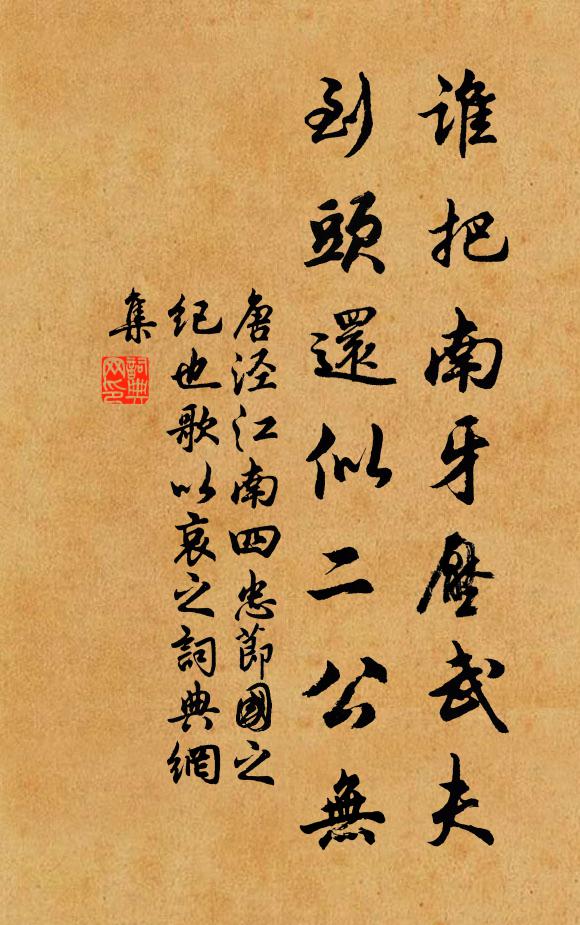 誰把南牙壓武夫
到頭還似二公無
唐涇江南四忠節國之
紀也歌以哀之詞典網
集
詞典
网印